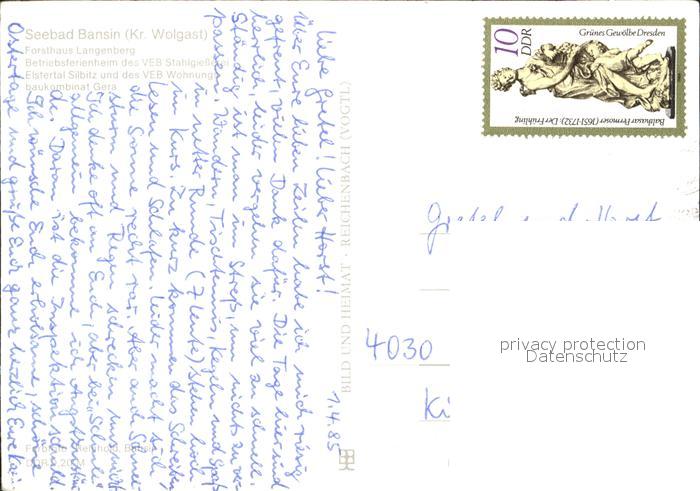 Seebad Bansin (Kr. Wolgast)
Forsthaus Langenberg
Betriebsferienheim des VEB Stahlgießerei
Elstertal Silbitz und des VEB Wohnungs-
baukombinat Gera
BILD UND HEIMAT · REICHENBACH (VOGTL)
1.4.85
Liebe Gretel! Lieber Horst!
Über Eure lieben Zeilen habe ich mich riesig
gefreut, vielen Dank dafür. Die Tage hier sind
herrlich, leider vergehen sie viel zu schnell.
Ständig ist man im Streß, um nichts zu ver-
passen. Wandern, Tischtennis, Kegeln und Spaß
in netter Runde (7 Leute) stehen hoch
im Kurs. Zu kurz kommen das Schreiben,
Lesen und Schlafen. Leider macht sich
die Sonne recht rar. Aber auch Schnee-
sturm und Regen schrecken uns nicht
Ich denke oft an Euch, aber bei
allgemein bekomme ich
de. Daran ist die Inspektion schuld.
Ich wünsche Euch erholsame, schöne
Ostertage und grüße Euch ganz herzlich Eure
10
DDR
Grünes Gewölbe Dresden
Balthasar Permoser (1651-1732): Der Frühling
Gretel und Horst
4030
privacy protection
Datenschutz
Ki